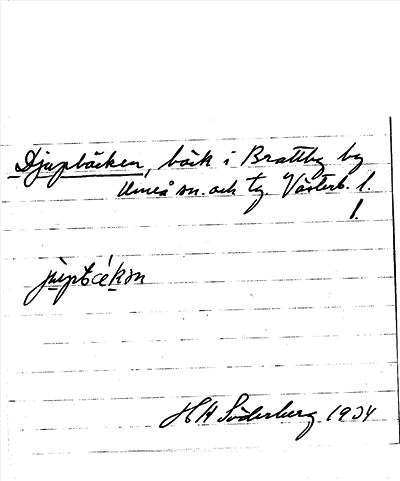 Djupbäcken, bäck i Brattby by
Umeå sn. och tg. Västerb. l.
l.
jùptǽkən
H H Söderberg 1934